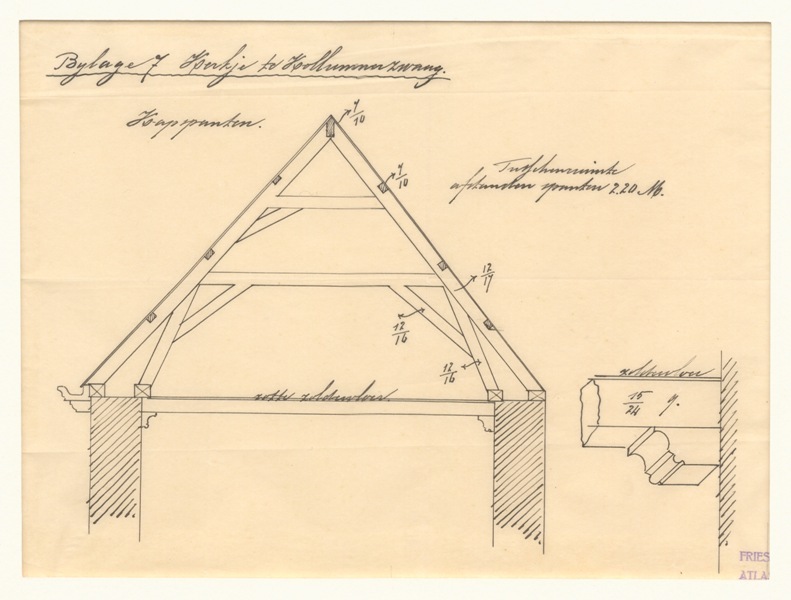 Bylage 7 Kerkje te Kollumerzwaag.
Kapspanten.
7/10
7/10
Tusschenruimte
afstanden spanten 2.20 M.
12/17
12/16
12/16
zoldervloer
zoldervloer
15/24 g.
FRIES
ATLA